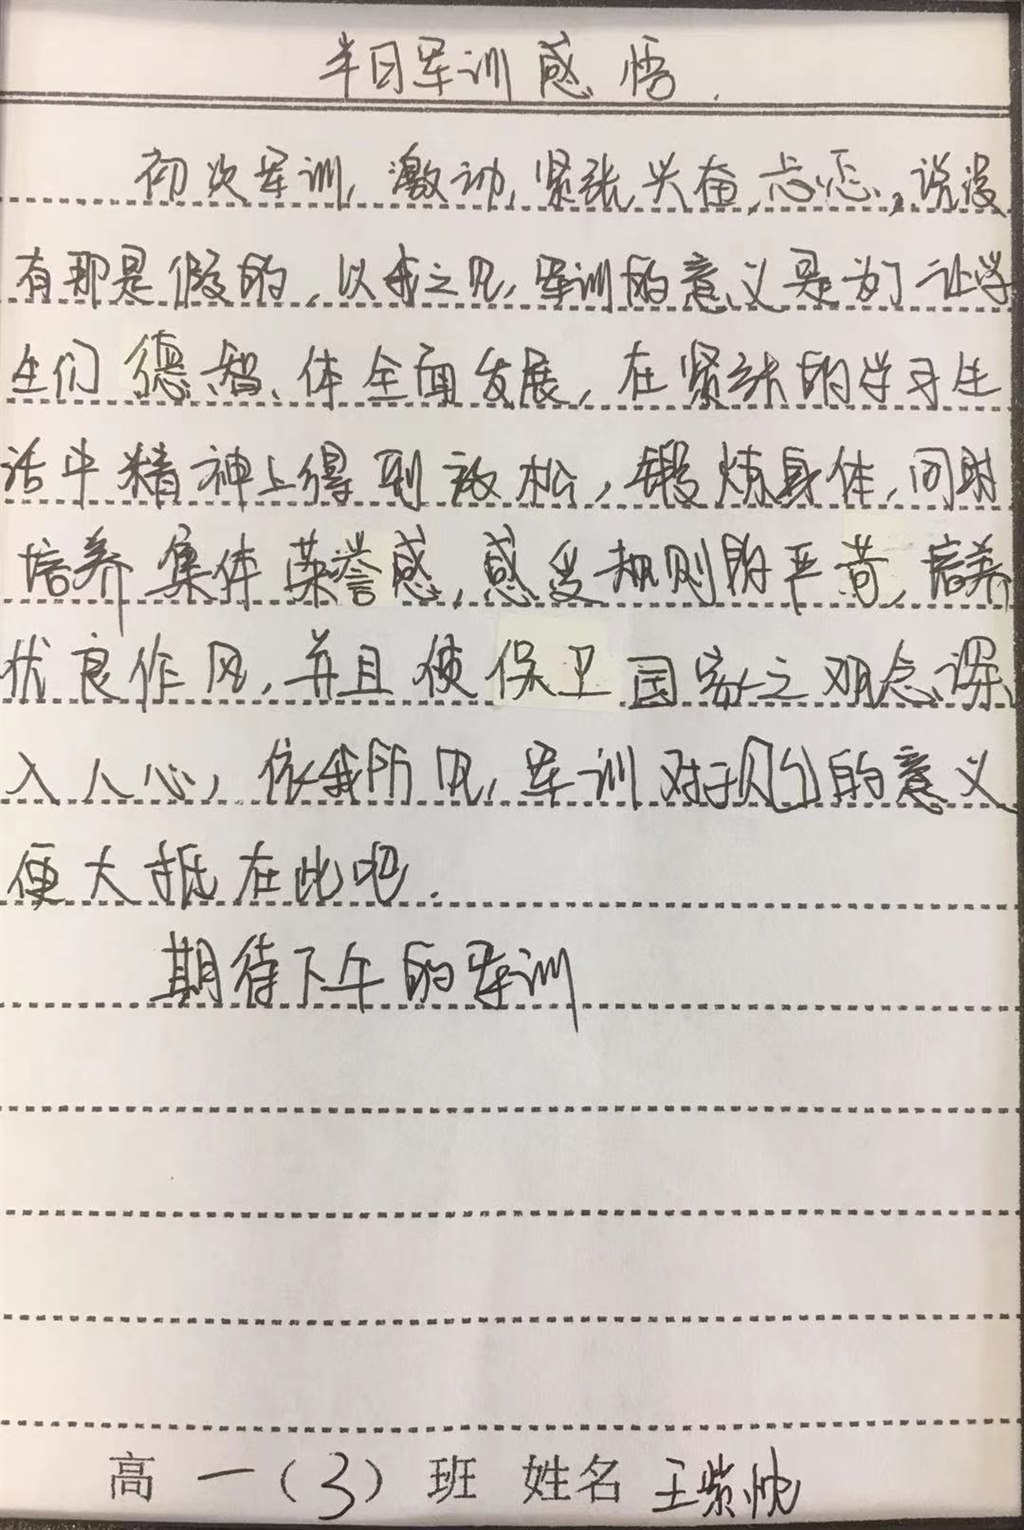 半日军训感悟.
初次军训,激动,紧张,兴奋,忐忑,说没
有那是假的,以我之见,军训的意义是为了让学
生们德、智、体全面发展,在紧张的学习生
活中精神上得到放松,锻炼身体,同时
培养集体荣誉感,感受规则的严苛,培养
优良作风,并且使保卫国家之观念深
入人心,依我所见,军训对于我们的意义
便大抵在此吧.
期待下午的军训
高一(3)班 姓名 王紫忱